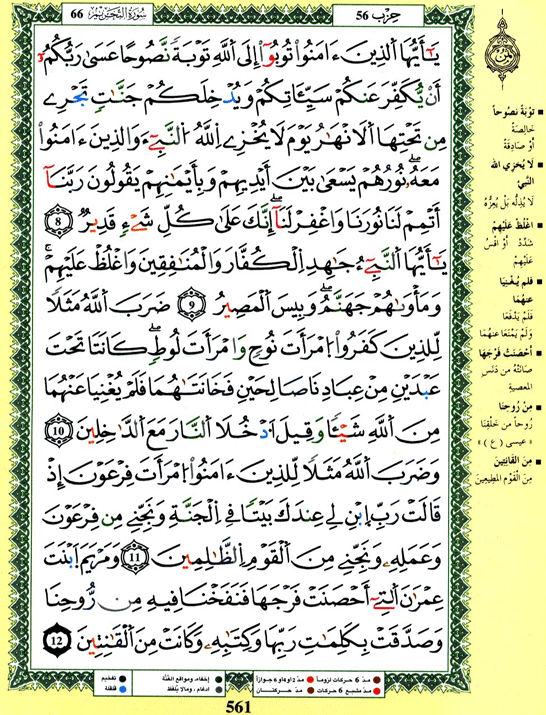 سُورَةُ التَّحْرِيمِ 66
حِزْب 56
يَـٰٓأَيُّهَا اَ۬لذِينَ ءَامَنُواْ تُوبُوٓاْ إِلَى اَ۬للَّهِ تَوْبَةٗ نَّصُوحاً عَس۪ىٰ رَبُّكُمُۥٓ
أَنْ يُّكَفِّرَ عَنكُمْ سَيِّـَٔاتِكُمْ وَيُدْخِلَكُمْ جَنَّـٰتٖ تَجْرِے
مِن تَحْتِهَا اَ۬لَانْهَـٰرُ يَوْمَ لَا يُخْزِے اِ۬للَّهُ اُ۬لنَّبِيٓءَ وَالذِينَ ءَامَنُواْ
مَعَهُۥ نُورُهُمْ يَسْع۪ىٰ بَيْنَ أَيْدِيهِمْ وَبِأَيْمَـٰنِهِمْ يَقُولُونَ رَبَّنَآ
أَتْمِمْ لَنَا نُورَنَا وَاغْفِرْ لَنَآ إِنَّكَ عَلَىٰ كُلِّ شَےْءٖ قَدِيرٞ 8
يَـٰٓأَيُّهَا اَ۬لنَّبِيٓءُ جَـٰهِدِ اِ۬لْكُفَّارَ وَالْمُنَـٰفِقِينَ وَاغْلُظْ عَلَيْهِمْ
وَمَأْو۪ىٰهُمْ جَهَنَّمُ وَبِيسَ اَ۬لْمَصِيرُ 9 ضَرَبَ اَ۬للَّهُ مَثَلاٗ
لِّلذِينَ كَفَرُواْ اُ۪مْرَأَتَ نُوحٖ وَامْرَأَتَ لُوطٖ كَانَتَا تَحْتَ
عَبْدَيْنِ مِنْ عِبَادِنَا صَـٰلِحَيْنِ فَخَانَتَـٰهُمَا فَلَمْ يُغْنِيَا عَنْهُمَا
مِنَ اَ۬للَّهِ شَيْـٔاٗ وَقِيلَ اَ۟دْخُلَا اَ۬لنَّارَ مَعَ اَ۬لدَّٰخِلِينَ 10
وَضَرَبَ اَ۬للَّهُ مَثَلاٗ لِّلذِينَ ءَامَنُواْ اُ۪مْرَأَتَ فِرْعَوْنَ إِذْ
قَالَتْ رَبِّ اِ۪بْنِ لِے عِندَكَ بَيْتاٗ فِے اِ۬لْجَنَّةِ وَنَجِّنِے مِن فِرْعَوْنَ
وَعَمَلِهِۦ وَنَجِّنِے مِنَ اَ۬لْقَوْمِ اِ۬لظَّـٰلِمِينَ 11 وَمَرْيَمَ اَ۪بْنَتَ
عِمْرَٰنَ اَ۬لتِےٓ أَحْصَنَتْ فَرْجَهَا فَنَفَخْنَا فِيهِ مِن رُّوحِنَا
وَصَدَّقَتْ بِكَلِمَـٰتِ رَبِّهَا وَكِتَـٰبِهِۦ وَكَانَتْ مِنَ اَ۬لْقَـٰنِتِينَ 12
تَوْبَةً نَصُوحاً
خَالِصَةً
أَوْ صَادِقَةً
لَا يُخْزِي الله
النَّبِي
لَا يُذِلُّهُ بَلْ يُعِزُّهُ
اغْلُظْ عَلَيْهِمْ
شَدِّدْ أَوِ اقْسُ
عَلَيْهِمْ
فَلَم يُغْنِيَا
عنهما
فَلَمْ يَدْفَعَا
وَلَمْ يَمْنَعَا عنهما
أَحْصَنَتْ فَرْجَهَا
صَانَتْهُ من دَنَسِ
المعصية
مِن رُوحِنَا
رُوحاً من خَلْقِنَا
«عيسى (ع)»
مِنَ القَانِتِينَ
مِنَ القَوْمِ المطِيعينَ
مدّ 6 حركات لزوماً
مدّ 2 أو 4 أو 6 جوازاً
إخفاء، ومواقع الغُنَّة
تفخيم
مدّ مشبع 6 حركات
مدّ حركتان
ادغام، وما لا يُلفظ
قلقلة
561